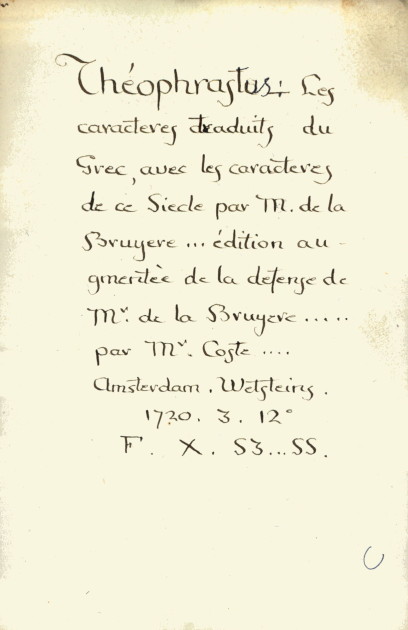 Théophrastus: Les
caracteres traduits du
Grec, avec les caracteres
de ce Siecle par M. de la
Bruyere ... édition au-
gmentèe de la defense de
Mr. de la Bruyere .....
par Mr. Coste ....
Amsterdam. Wetsteins.
1720. 3. 12°
F. X. 53...55.